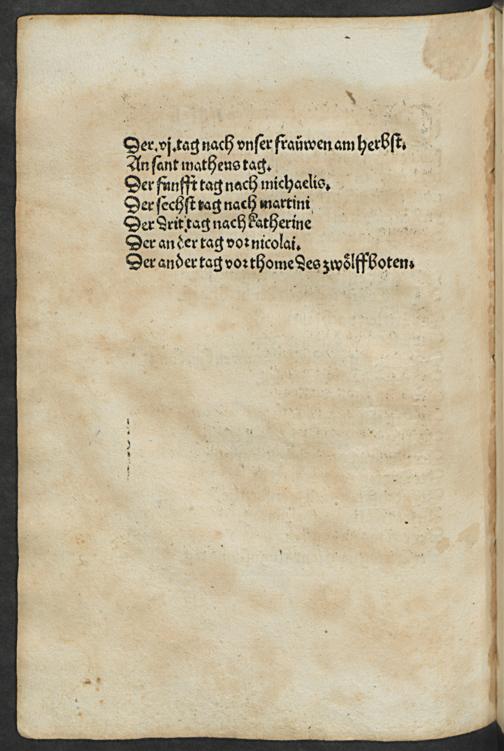 Der.vj.tag nach vnser fraůwen am herbst.
An sant matheus tag.
Der funfft tag nach michaelis.
Der sechst tag nach martini
Der drit tag nach katherine
Der an der tag vor nicolai.
Der ander tag vor thome des zwoͤlffboten.